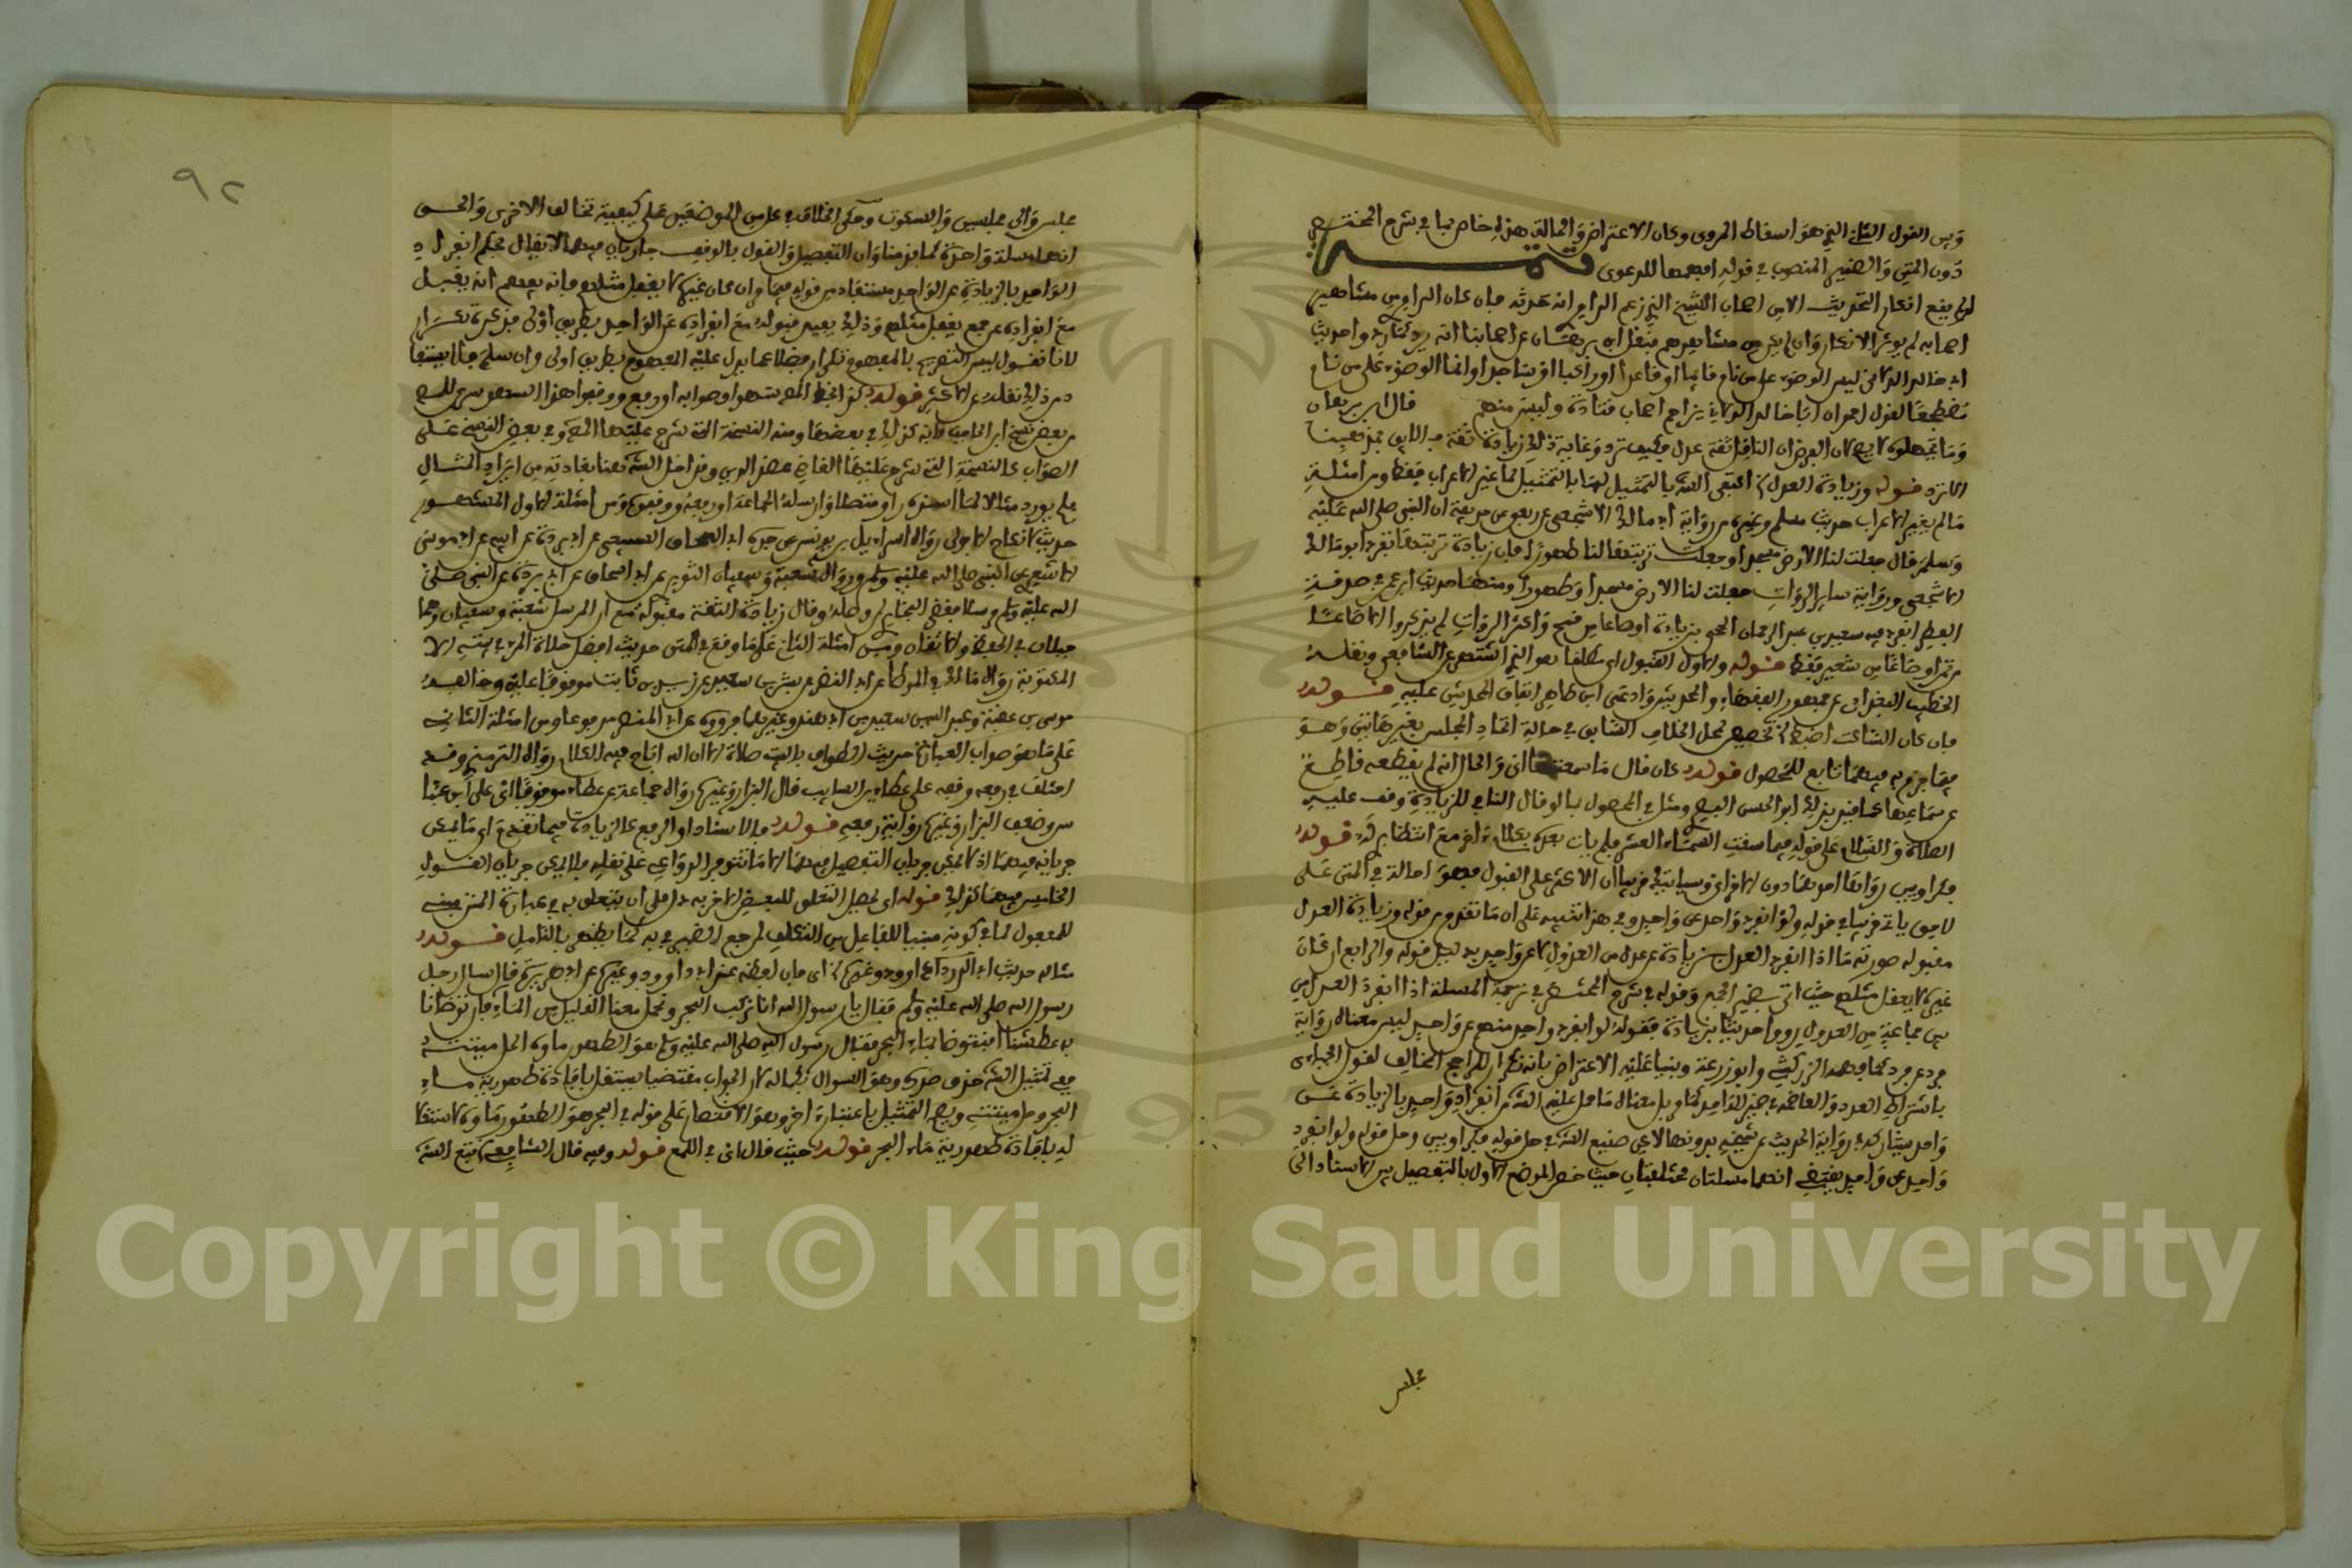 وبين القول الثاني الذي هو اسقاط المروي وكان الاعتراض والحالة هذه خاص بما في شرح المختصر
دون المتن والضمير المنصوب في قوله للدعوى تتمة
انكار التحديث الا من اصحاب الشيخ الذي زعم الراوي انه حدثه فان كان الراوي من مشاهير
اصحابه لم يوثر الانكار وان لم يكن من مشاهيرهم فنقل ابن برهان عن اصحابنا انه يرد كما ردوا حديث
ابي خالد الدالاني ليس الوضوء على من نام قائما او قاعدا او راكعا او ساجدا وانما الوضوء على من نام
مضطجعا لقول احمد ان ابا خالد الدالاني يزاحم اصحاب قتادة وليس منهم قال ابن برهان
وما تخيلوه لا يصح لان الفرض ان الناقل ثقة عدل فكيف ترد وغاية ذلك زيادة ثقة
قوله وزيادة العدل اكتفى الش بالتمثيل لها بالتمثيل لما غير الاعراب فقط ومن امثلة
ما لم يغير الاعراب حديث مسلم وغيره من رواية ابي مالك الاشجعي عن ربعي عن حذيفة ان النبي صلى الله عليه
وسلم قال جعلت لنا الارض مسجدا وجعلت تربتها لنا طهورا فان زيادة تربتها تفرد بها ابو مالك
الاشجعي ورواية ساير الروات جعلت لنا الارض مسجدا وطهورا ومنها حديث ابن عمر في صدقة
الفطر انفرد فيه سعيد بن عبد الرحمان الجمحي بزيادة او صاعا من قمح واكثر الروات لم يذكروا الا صاعا
من تمر او صاعا من شعير فقط قوله والاول القبول اي مطلقا هو الذي اشتهر عن الشافعي ونقله
الخطيب البغدادي عن جمهور الفقهاء والمحدثين وادعى ابن طاهر اتفاق المحدثين عليه قوله
فان كان الساكت اضبط تخصيص لمحل الخلاف السابق في حالة اتحاد المجلس بغير هاتين وهو
فيما جزم به فيهما تابع للمحصول قوله كان قال ما سمعتها اي والحال انه لم يقطعه قاطع
عن سماعها كما قيد بذلك ابو الحسين البصري ومثل في المحصول بما لو قال النافي للزيادة وقف عليه
الصلاة والسلام على قوله فيما سقت السماء العشر فلم يات بعده بكلام اخر مع انتظاري له قوله
فكراويين رواها احدهما دون الاخر اي وسياتي قريبا ان الاكثر على القبول فهو احالة في المتن على
لاحق ياتي قريبا في قوله ولو انفرد واحد عن واحد وفي هذا تنبيه على ان ما تقدم من قوله وزيادة العدل
مقبولة صورته ما اذا انفرد العدل بزيادة عن عدد من العدول لا عن واحد بدليل قوله والرابع ان كان
غيره لا يغفل مثلهم حيث اتى بضمير الجمع وقوله في شرح المختصر في ترجمة المسلة اذا انفرد العدل من
بين جماعة من العدول رووا حديثا بزيادة فقوله لو انفرد واحد منهم عن واحد ليس معناه رواية
فرد عن فرد كما فهمه الزركشي وابو زرعة وبنيا عليه الاعتراض بانه تكرار للراجح المخالف لقول
باشتراط العدد والعاضد في خبر الواحد كما بل معناه ما حمل عليه الش من انفراد واحد بالزيادة عن
واحد يشاركه في رواية الحديث عن شيخه بدونها لا يقال صنيع الش في حل قوله فكراويين وحل قوله ولو انفرد
واحد عن واحد يقتضي انهما مسلتان مختلفتان حيث خص الموضع الاول بالتفصيل بين الاسناد الى
مجلس
٩٢
مجلس والى مجلسين والسكوت وحكى الخلاف في كل من الموضعين على كيفية تخالف الاخرى والحق
انهما مسلة واحدة كما قدمنا وان التفصيل والقول بالوقف جاريان فيهما لا يقال حكم انفراد
الواحد بالزيادة عن الواحد مستفاد من قوله فيما وان كان غيره لا يغفل مثلهم فانه يفهم انه يقبل
مع انفراده عن جمع يغفل مثلهم وذلك يفيد قبوله مع انفراده عن الواحد بطريق اولى فذكره تكرار
لانا نقول ليس التصريح بالمفهوم تكرار فضلا عما يدل عليه المفهوم بطريق اولى وان سلم
من ذلك نقله عن الاكثر قوله
من بعض نسخ فانه كذلك في بعضها ومنه النسخة التي شرح عليها وفي بعض النسخ على
الصواب كالنسخة التي شرح عليها القاضي عضد الدين وقد اخل الش هنا بعادته من ايراد المثال
فلم يورد مثالا لما اسنده راو متصلا وارسله الجماعة او رفعه ووقفوه ومن امثلة الاول المشهور
حديث لا نكاح الا بولي رواه اسرائيل بن يونس عن جده ابي اسحاق السبيعي عن ابي بردة عن ابيه عن ابي موسى
الاشعري عن النبي صلى الله عليه وسلم ورواه شعبة وسفيان الثوري عن ابي اسحاق عن ابي بردة عن النبي صلى
الله عليه وسلم مرسلا فقضى البخاري لمن وصله وقال زيادة الثقة مقبولة مع ان المرسل شعبة وسفيان وهما
جبلان في الحفظ والاتقان ومن امثلة الثاني على ما وقع في المتن حديث افضل صلاة المرء في بيته الا
المكتوبة رواه مالك في الموطا عن ابي النضر عن بشر بن سعيد عن زيد بن ثابت موقوفا عليه وخالفه
موسى بن عقبة وعبد الله بن سعيد بن ابي هند وغيرهما فرووه عن ابي النضر مرفوعا ومن امثلة الثاني
على ما هو صواب العبارة حديث الطواف بالبيت صلاة الا ان الله اباح فيه الكلام رواه الترمذي وقد
اختلف في رفعه ووقفه على عطاء بن السايب قال البزار وغيره رواه جماعة عن عطاء موقوفا اي على ابن عبا
س وضعف البزار وغيره رواية رفعه قوله فالاسناد او الرفع كالزيادة فيما تقدم اي ما يمكن
جريانه فيهما اذ لا يمكن جريان التفصيل فيهما الا ما تتوفر الدواعي على نقله فلا يمكن جريان القول
الخامس فيهما كذلك قوله اي يحصل التعلق للبعض الاخر به اصل ان يتعلق به في عبارة المتن مبني
للمفعول لما في كونه مبنيا للفاعل من التكلف لمرجع الضمير في به كما يظهر بالتامل قوله
مثاله حديث ابي داوود وغيره عن ابي هريرة قال سال رجل
رسول الله صلى الله عليه وسلم فقال يا رسول الله انا نركب البحر ونحمل معنا القليل من الماء فان توضانا
به عطشنا افنتوضا بماء البحر فقال رسول الله صلى الله عليه وسلم هو الطهور ماؤه الحل ميتته
ففي تمثيل الش حذف صدره وهو السوال بكماله لان الجواب مقتضيا مستقل بافادة طهورية ماء
البحر وحل ميتته ويصح التمثيل باعتبار اخر وهو الاقتصار على قوله في البحر هو الطهور ماؤه لاستقلا
له بافادة طهورية ماء البحر قوله حيث قال اي في اللمع قوله وفيه قال الشافعي تبع الش